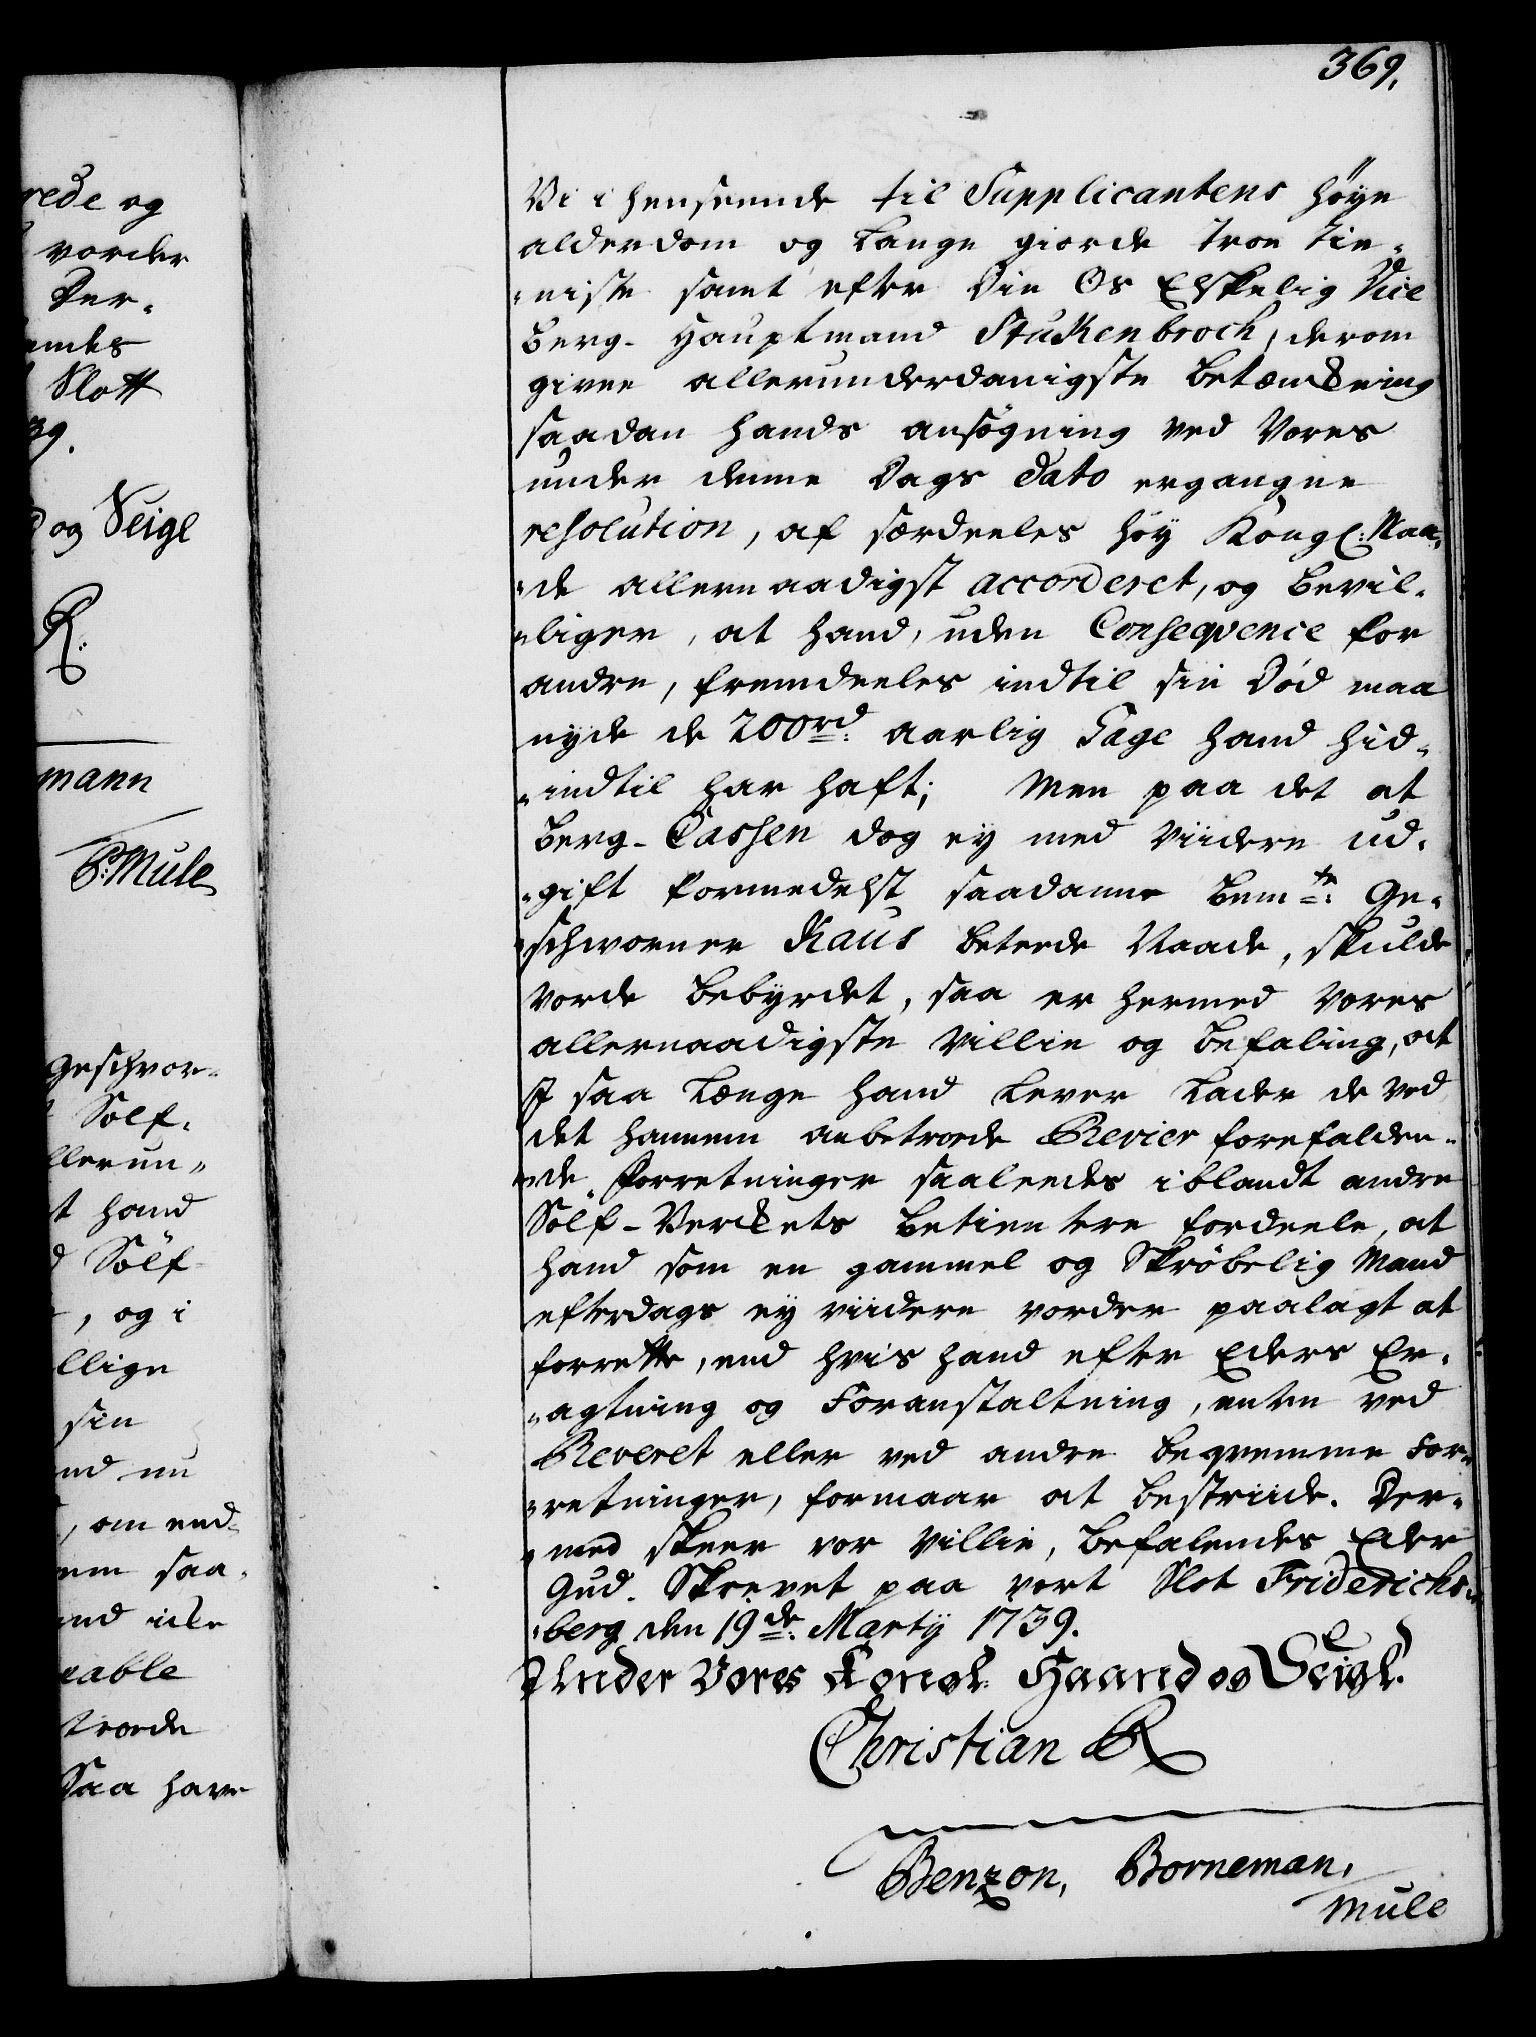 369.
rede og
vorder
Der-
endes
Slott
39.
d og Seigl
R.
mann
P: Mule
Geschvor-
Sølf-
llerun-
t hand
d Sølf-
, og i
llige
sin
end nu
, om end-
em saa-
end icke
cable
troede
Saa have
Vi i henseende til Supplicantens høye
alderdom og Lange giorde troe tie-
-niste samt efter Din Os Elskelig Vice
Berg- Hauptmand Stukenbrock, derom
given allerunderdanigste Betænckning
saadan hands ansøgning ved Vores
under denne Dags Dato ergangne
resolution, af særdeeles høy Kongl: Naa-
-de allernaadigst accorderet, og bevil-
-liger, at hand, uden Conseqvence for
andre, fremdeeles indtil sin Død maa
nyde de 200 rd. aarlig Gage hand hid-
-indtil har haft; Men paa det at
Berg- Cassen dog ey med viidere ud-
-gift formedelst saadanne bemte: Ge-
-schworner Kaus beteede Naade, skulde
vorde bebyrdet, saa er hermed Vores
allernaadigste Villie og befaling, at
I saa Længe hand Lever Lader de ved
det hannem anbetroede Revier forefalden-
-de Forretninger saaleedes iblandt andre
Sølf-Verckets betientere fordeele, at
hand som en gammel og Skrøbelig Mand
efterdags ey viidere vorder paalagt at
forrette, end hvis hand efter Eders Er-
-agtning og Foranstaltning, enten ved
Reveret eller ved andre beqvemme For-
-retninger, formaar at bestriide. Der-
-med skeer vor Villie, Befalendes Eder
Gud. Skrevet paa vort Slot Friderichs-
-berg den 19de: Martij 1739.
Under Vores Kongl: Haand og Seigl.
Christian R
Benzon, Borneman,
Mule